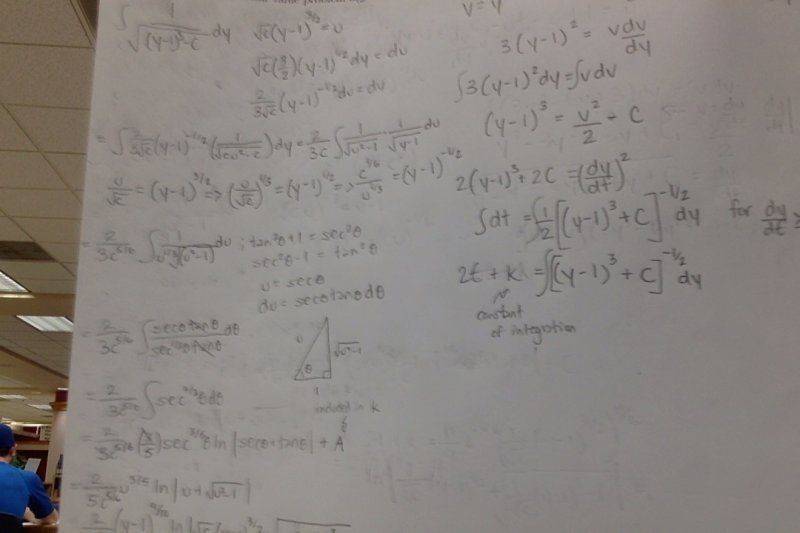 ∫ 1/√((y-1)³-c) dy   √c(y-1)^(3/2) = υ
√c(3/2)(y-1)^(1/2) dy = dυ
2/(3√c) (y-1)^(-1/2) dυ = dy
= ∫ 2/(3√c) (y-1)^(-1/2) (1/√(cυ²-c)) dy = 2/(3c) ∫ 1/√(υ²-1) · 1/√(y-1) dυ
υ/√c = (y-1)^(3/2) ⇒ (υ/√c)^(1/3) = (y-1)^(1/2) ⇒ c^(1/6)/υ^(1/3) = (y-1)^(-1/2)
= 2/(3c^(5/6)) ∫ 1/(υ^(1/3)√(υ²-1)) dυ ; tan²θ+1 = sec²θ
sec²θ-1 = tan²θ
υ = secθ
dυ = secθtanθdθ
= 2/(3c^(5/6)) ∫ secθtanθ/(sec^(1/3)θtanθ) dθ
υ √υ²-1
θ
1
= 2/(3c^(5/6)) ∫ sec^(2/3)θdθ
included in K
= 2/(3c^(5/6)) (3/5) sec^(3/5)θ ln|secθ+tanθ| + A
= 2/(5c^(5/6)) υ^(3/5) ln|υ+√υ²-1|
v = y
3(y-1)² = v dv/dy
∫3(y-1)²dy = ∫vdv
(y-1)³ = v²/2 - C
2(y-1)³+2C = (dy/dt)²
∫dt = ∫1/2[(y-1)³+C]^(-1/2) dy   for dy/dt ≥
2t + K = ∫[(y-1)³+C]^(-1/2) dy
constant
of integration